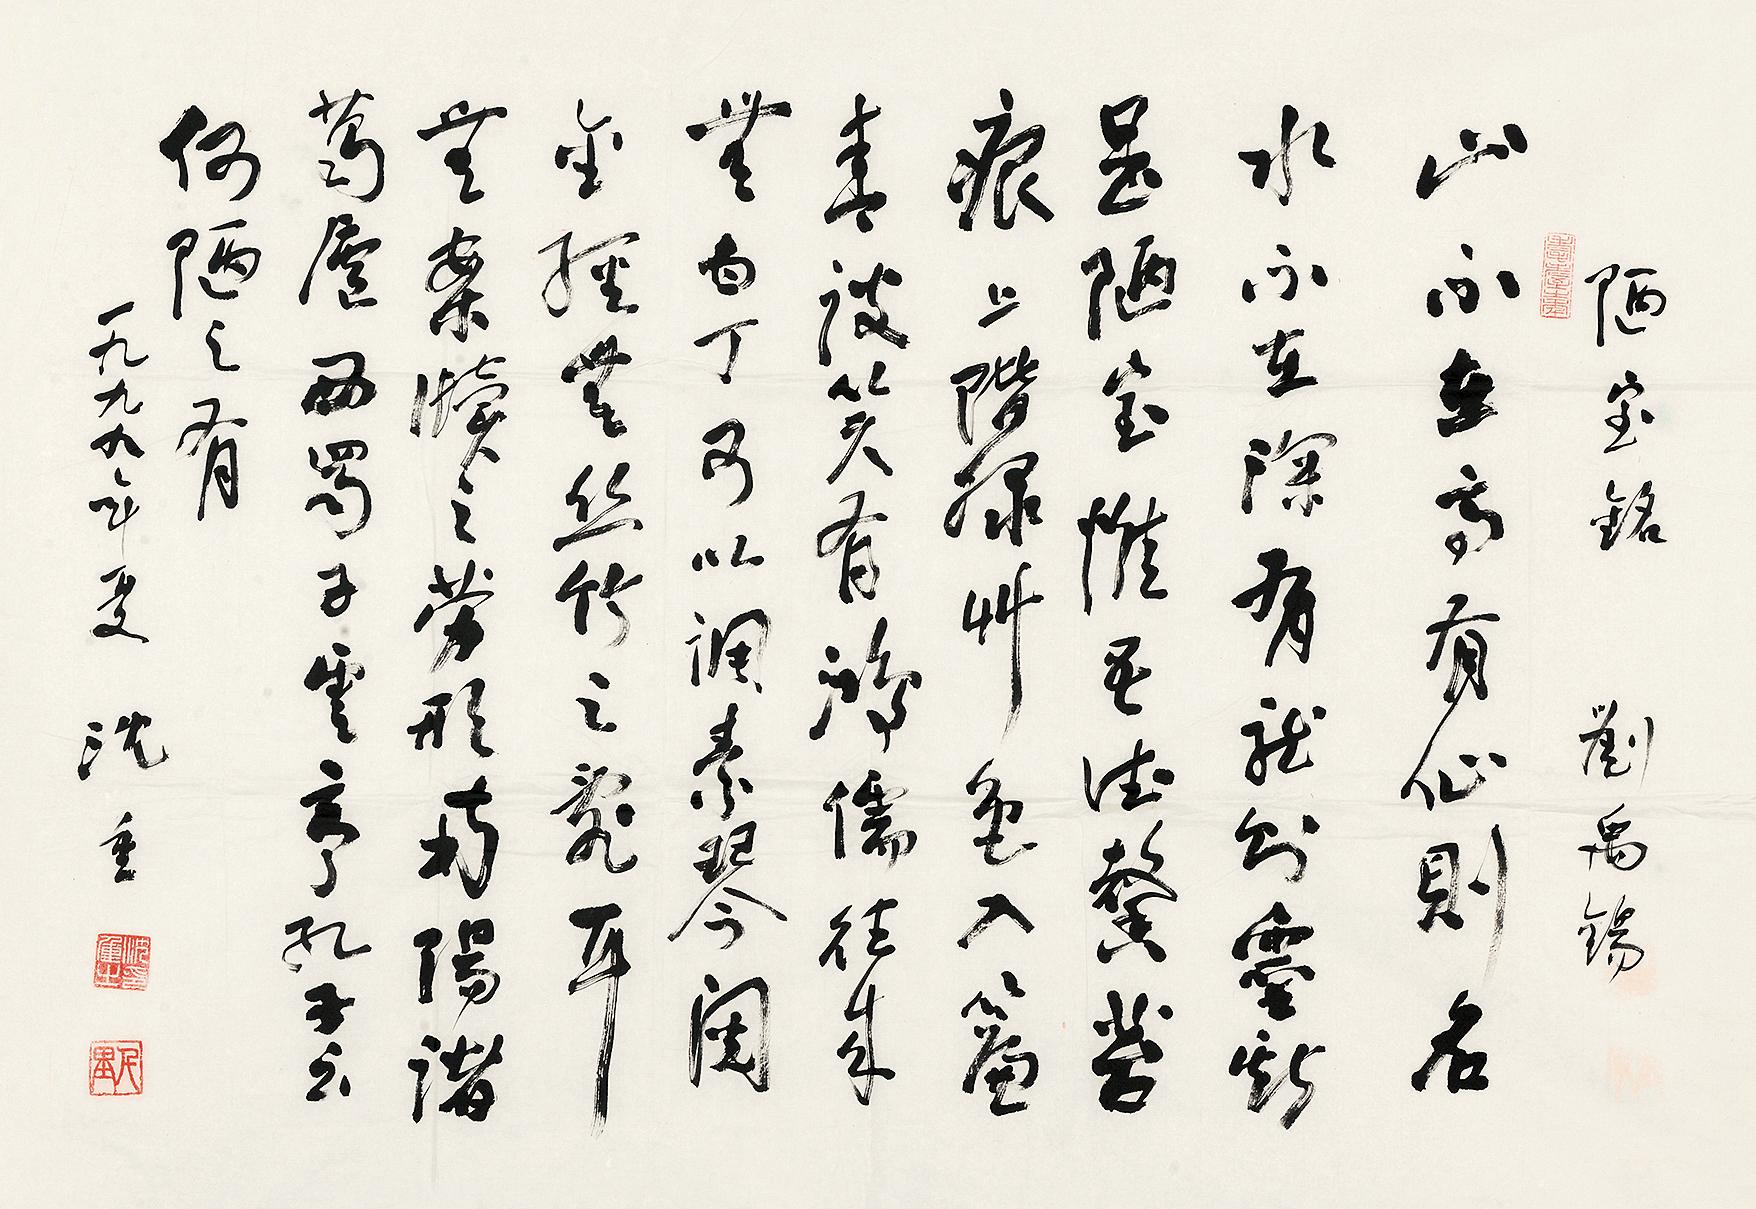 陋室銘 劉禹錫
山不在高有仙則名
水不在深有龍則靈斯
是陋室惟吾德馨苔
痕上階綠艸色入簾
青談笑有鴻儒往來
無白丁可以調素琴閱
金經無絲竹之亂耳
無案牘之勞形南陽諸
葛廬西蜀子雲亭孔子云
何陋之有
一九九九年夏 沈重